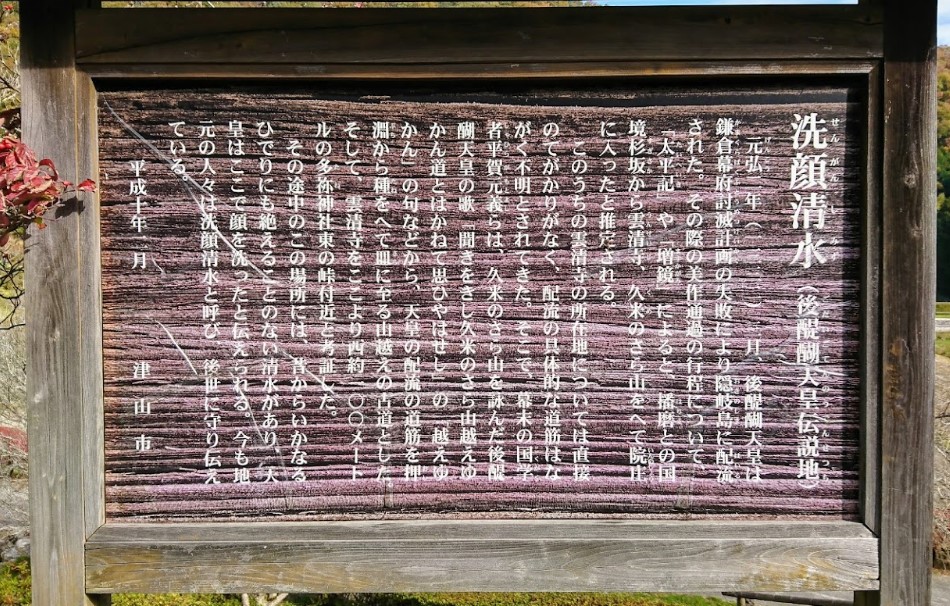 洗顔清水（後醍醐天皇伝説地）
元弘二年（一三三二）三月、後醍醐天皇は
鎌倉幕府討滅計画の失敗により隠岐島に配流
された。その際の美作通過の行程について、
「太平記」や「増鏡」によると、播磨との国
境杉坂から雲清寺、久米のさら山をへて院庄
に入ったと推定される。
このうちの雲清寺の所在地については直接
のてがかりがなく、配流の具体的な道筋はな
がく不明とされてきた。そこで、幕末の国学
者平賀元義らは、久米のさら山を詠んだ後醍
醐天皇の歌「聞きをきし久米のさら山越えゆ
かん道とはかねて思ひやはせし」の「越えゆ
かん」の句などから、天皇の配流の道筋を押
淵から種をへて皿に至る山越えの古道とした
そして、雲清寺をここより西約一〇〇メート
ルの多祢神社東の峠付近と考証した。
その途中のこの場所には、昔からいかなる
ひでりにも絶えることのない清水があり、天
皇はここで顔を洗ったと伝えられる。今も地
元の人々は洗顔清水と呼び、後世に守り伝え
ている。
平成十年三月 津山市